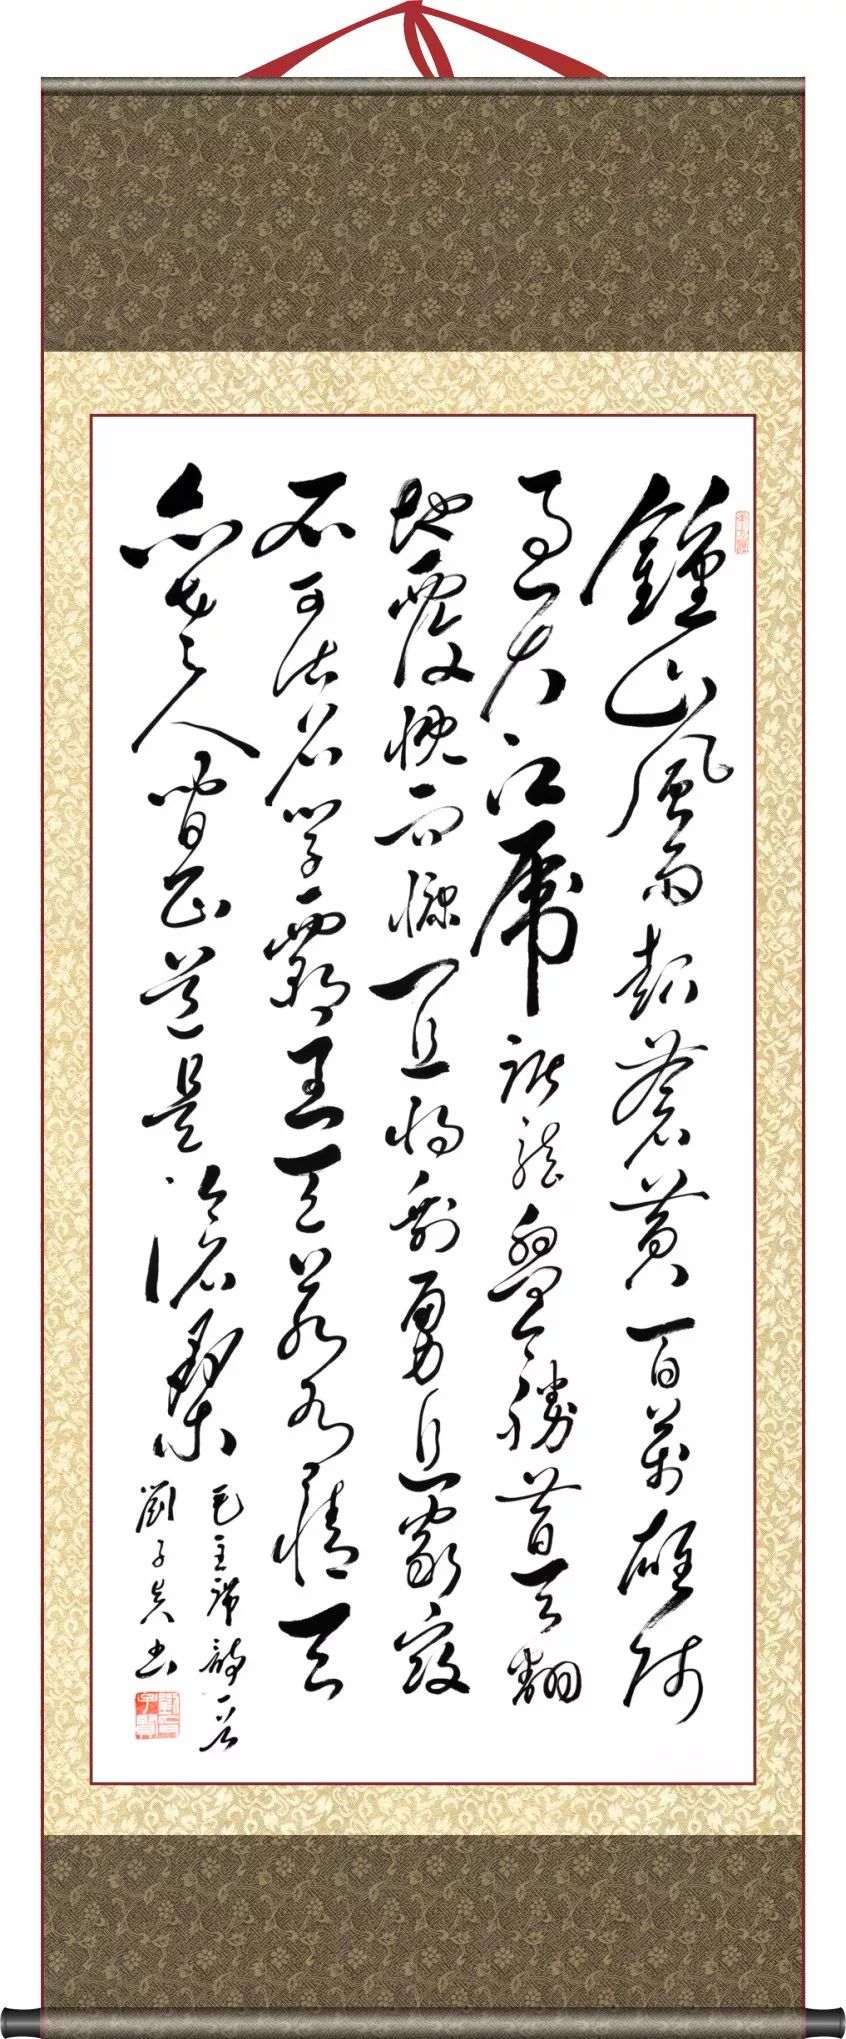 鍾山風雨起蒼黃百萬雄師
過大江虎踞龍盤今勝昔天翻
地覆慨而慷宜將剩勇追窮寇
不可沽名學霸王天若有情天
亦老人間正道是滄桑
毛主席詩一首
劉子書